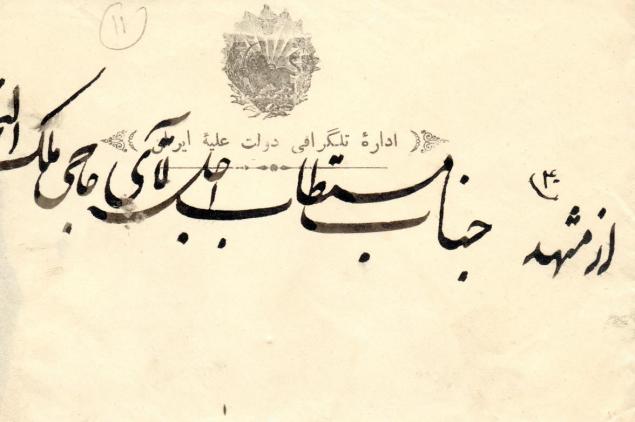 ۱۱
ادارهٔ تلگرافی دولت علیهٔ ایران
از مشهد جناب مستطاب اجل آقای حاجی ملک